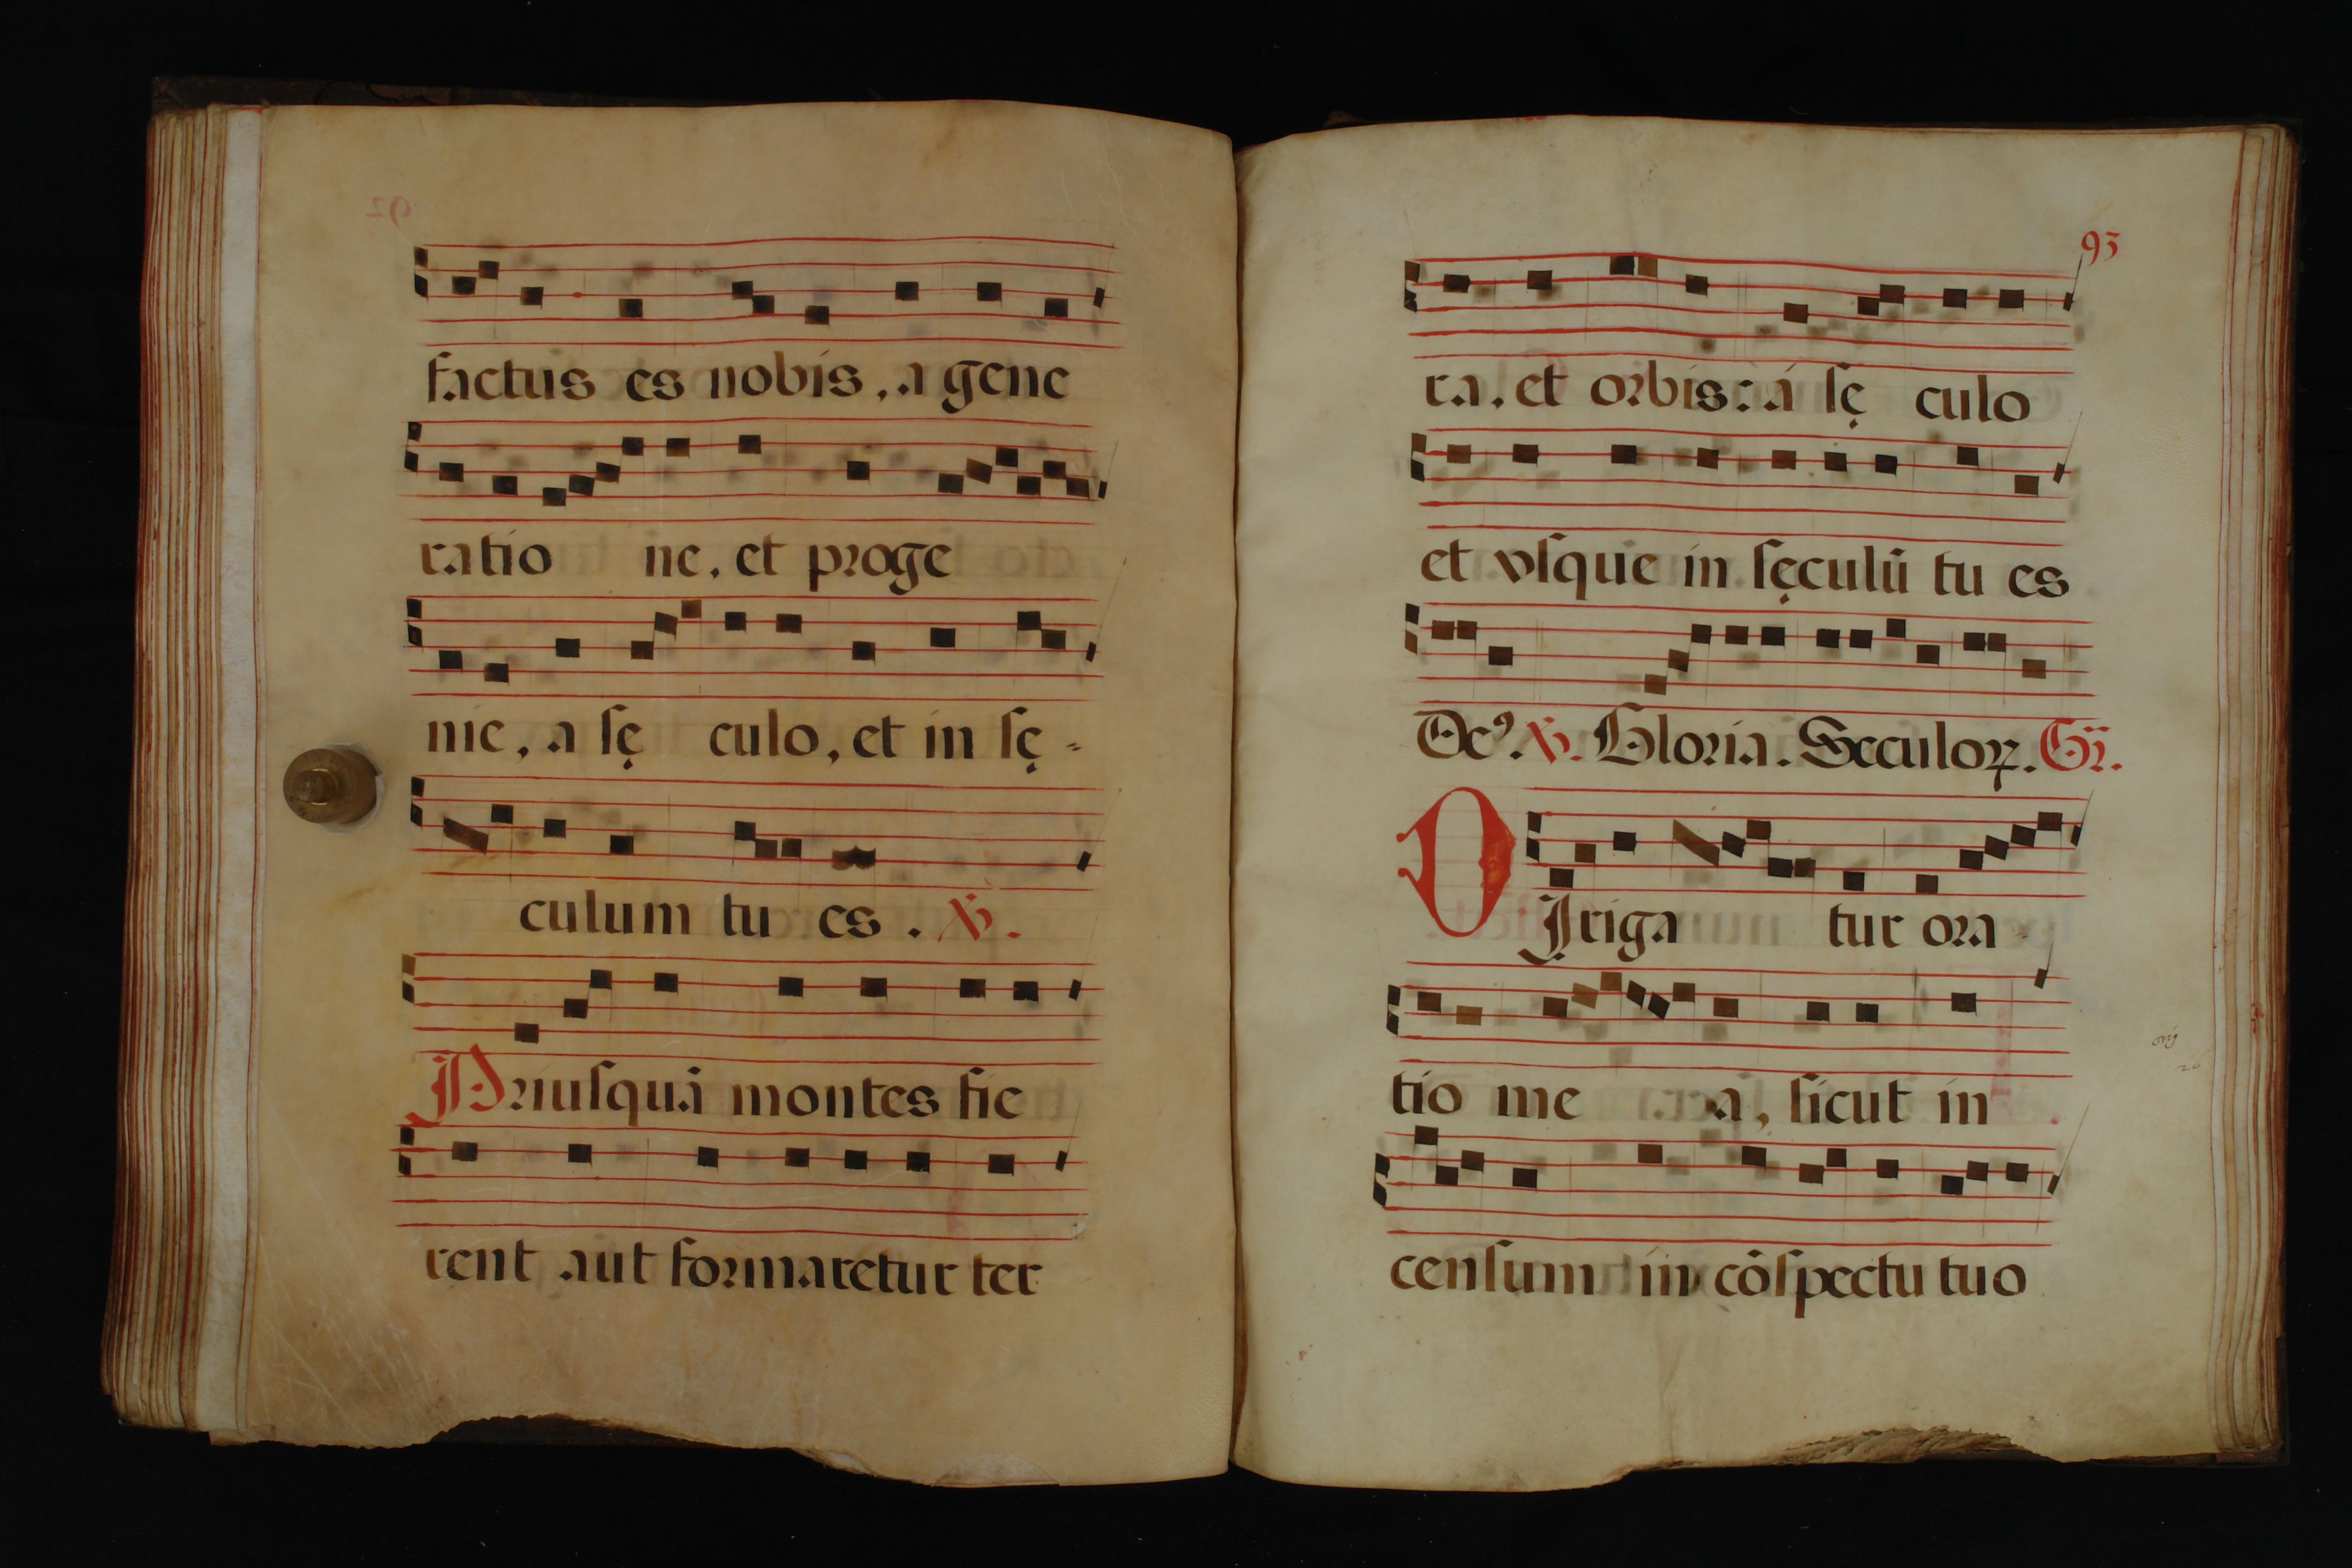 factus es nobis, a gene
ratio ne, et proge
nie, a sę culo, et in sę-
culum tu es. ℣.
Priusquā montes fie
rent aut formaretur ter
93
ra. et orbis: á sę culo
et vsque in sęculū tu es
Deꝰ. ℣. Gloria. Seculoꝝ. Gr̄.
DIriga tur ora-
tio me a, sicut in
censum in cōspectu tuo